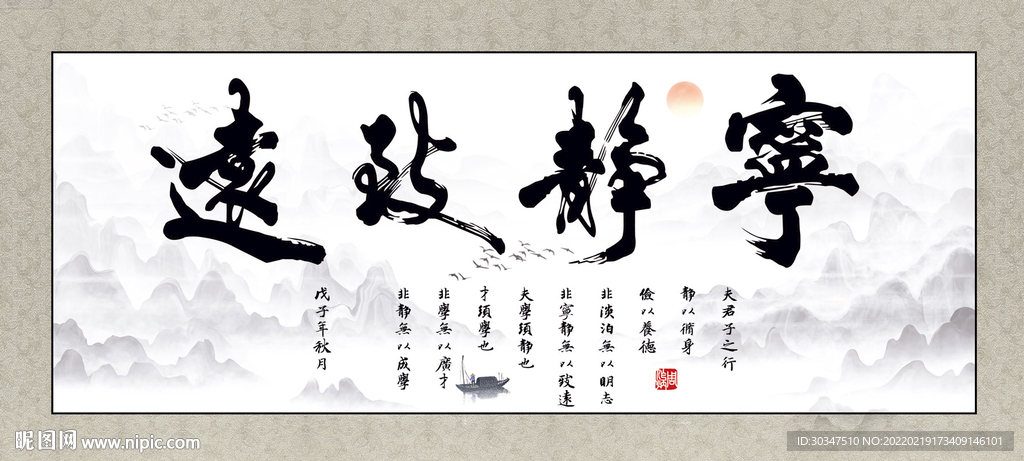 寧靜致遠
夫君子之行
靜以脩身
儉以養德
非淡泊無以明志
非寧靜無以致遠
夫學須靜也
才須學也
非學無以廣才
非靜無以成學
戊子年秋月
昵图网 www.nipic.com
ID:30347510 NO:20220219173409146101